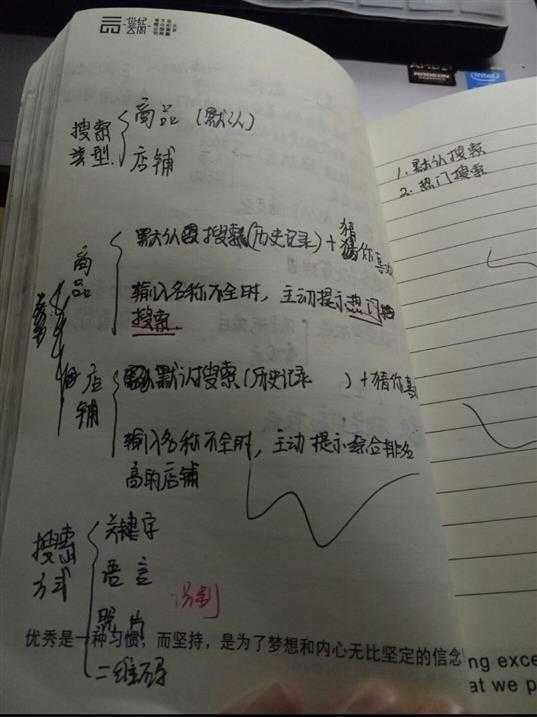 搜索
类型
商品 (默认)
店铺
1. 默认搜索
2. 热门搜索
商品
默认搜索(历史记录) + 猜你喜
输入名称不全时, 主动提示热门
搜索.
店铺
默认搜索(历史记录 ) + 猜你喜
输入名称不全时, 主动提示综合排名
高的店铺
搜索
方式
关键字
语言
照片
二维码
优秀是一种习惯, 而坚持, 是为了梦想和内心无比坚定的信念
ng exce
at we p
AMD
RADEON
intel